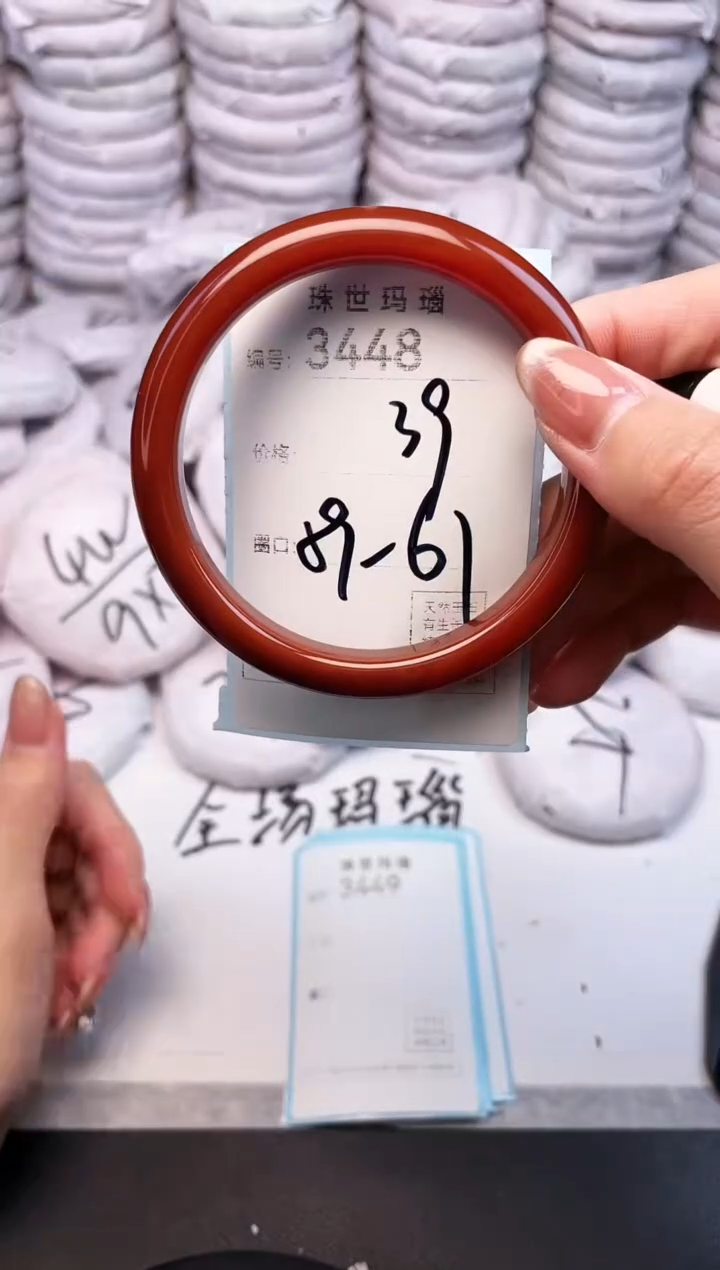 珠世玛瑙
编号: 3448
价格: 39
圈口: 59-61
天然玉石
4W
9X
全场玛瑙
珠世玛瑙
3449